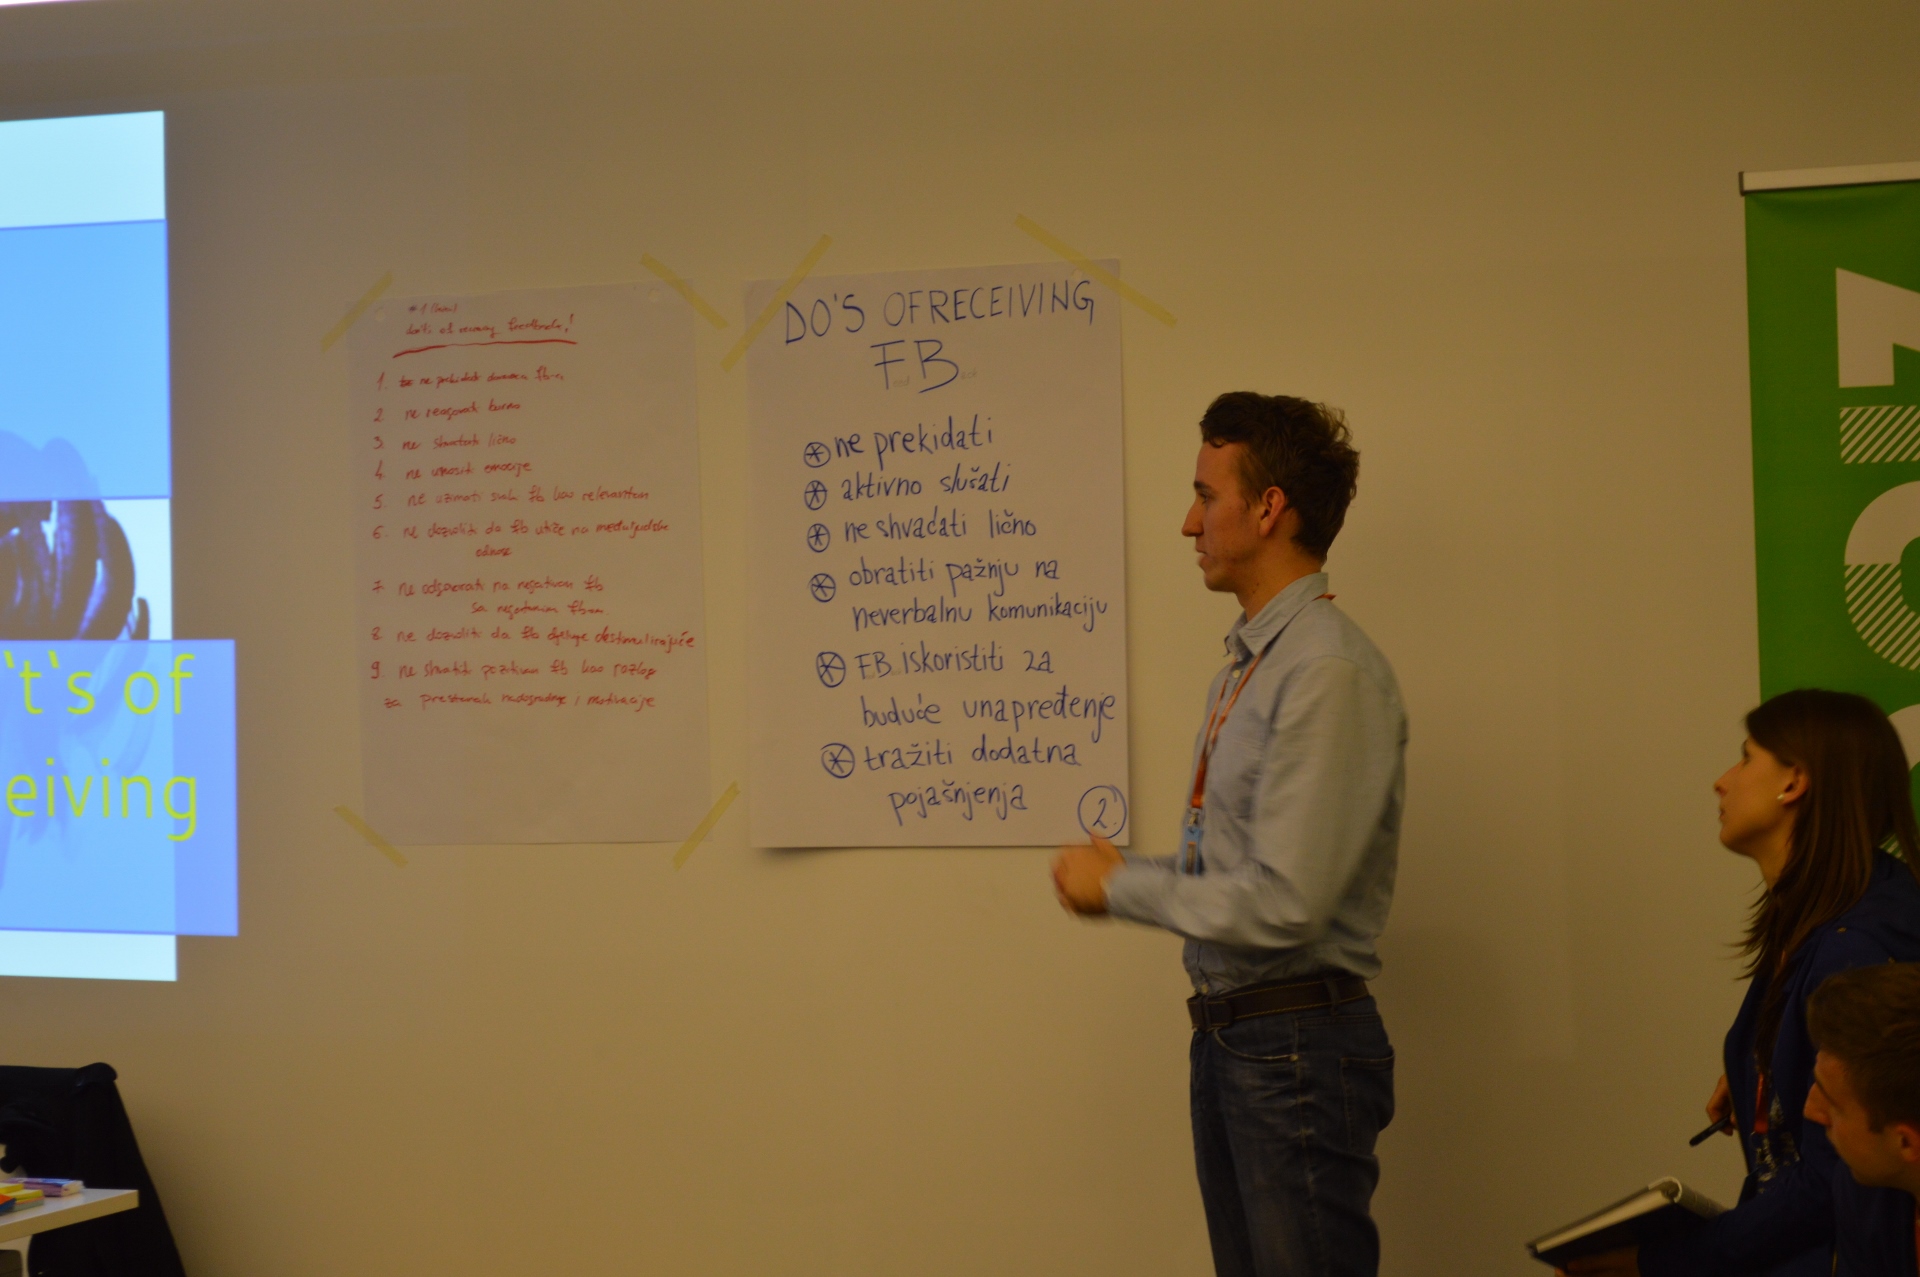 't's of
eiving
1. ne
2. ne reagovati burno
3. ne shvatati lično
4. ne unositi emocije
5. ne uzimati svaki fb kao relevantan
6. ne dozvoliti da fb utiče na međuljudske
odnose
7 ne odgovarati na negativan fb
sa negativnim fb-om
8. ne dozvoliti da fb djeluje destimulirajuće
9. ne shvatiti pozitivan fb kao razlog
za prestanak nadogradnje i motivacije
DO'S OF RECEIVING
FB
ne prekidati
aktivno slušati
ne shvaćati lično
obratiti pažnju na
neverbalnu komunikaciju
FB iskoristiti za
buduće unapređenje
tražiti dodatna
pojašnjenja
2.